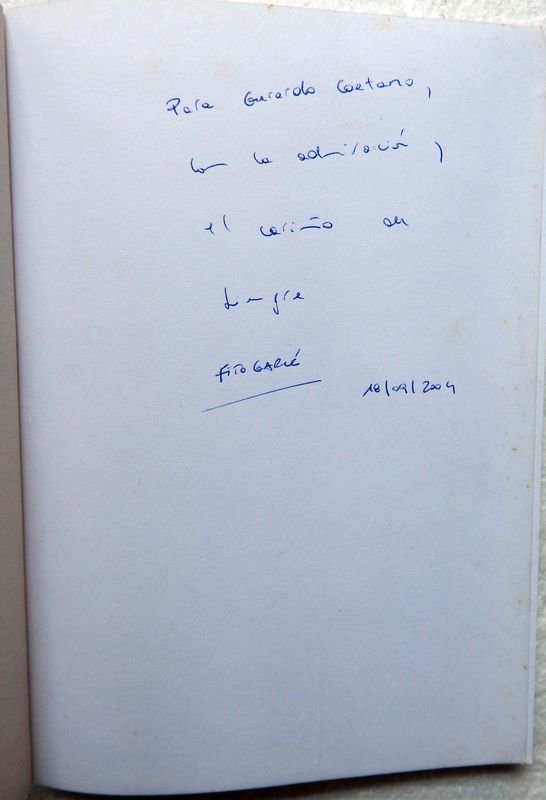 Para Gerardo Caetano,
con la admiración y
el cariño de
siempre
FITO GARCÉ
18/09/2004